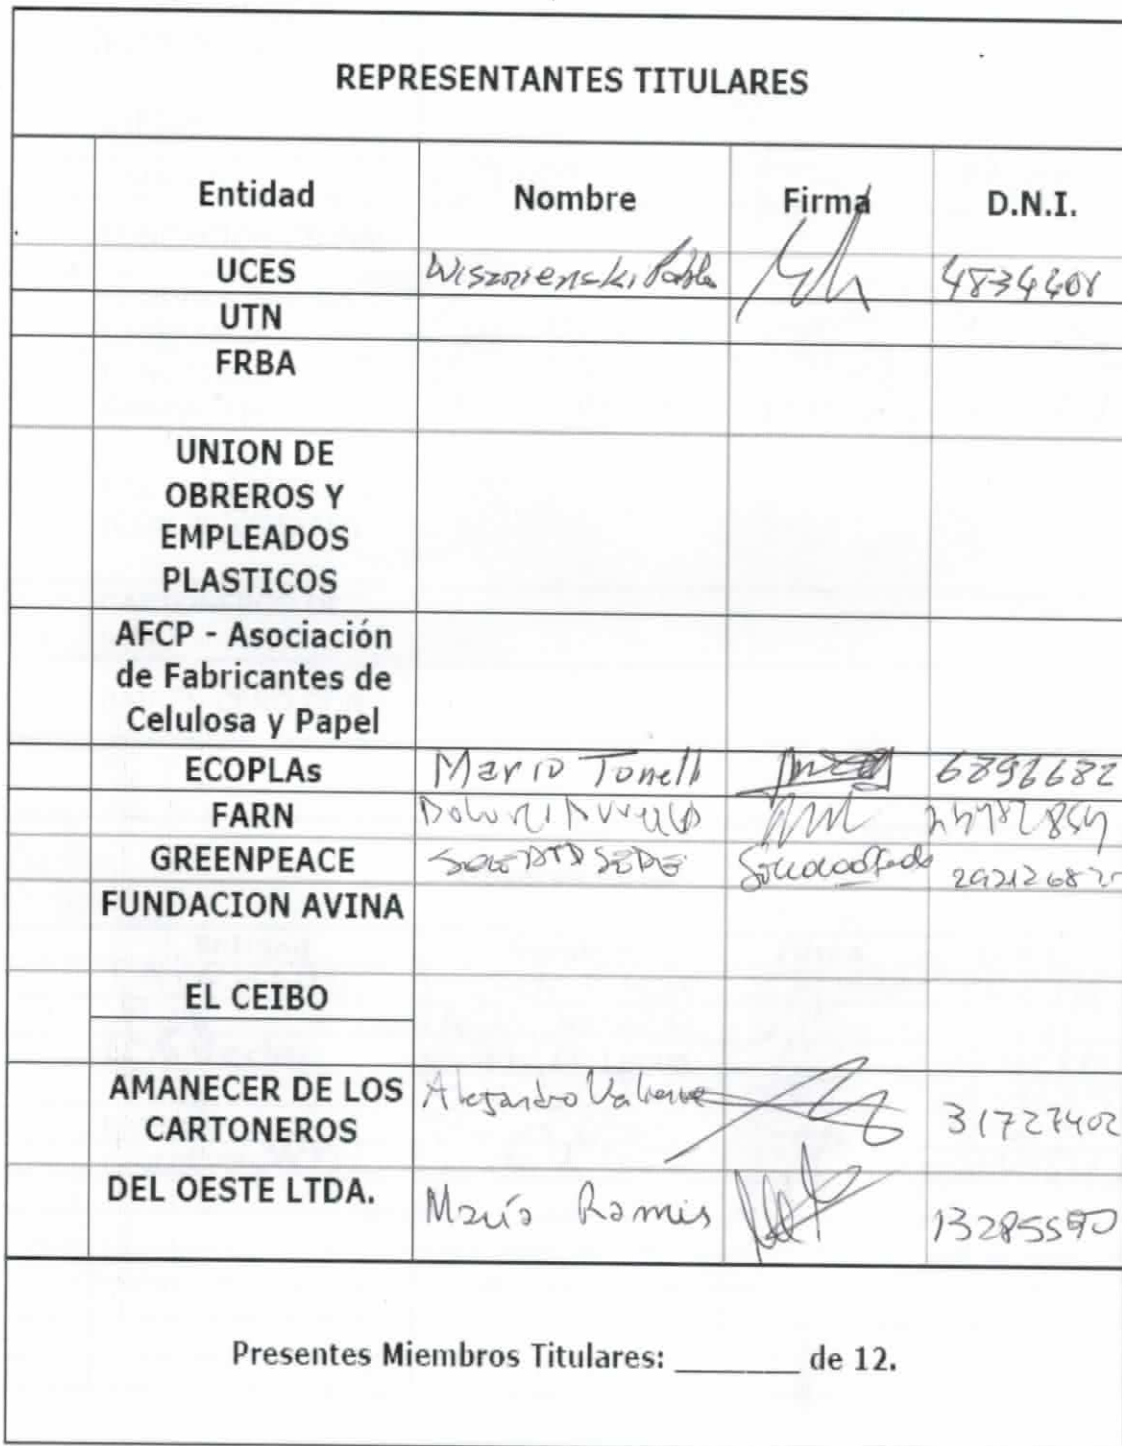 REPRESENTANTES TITULARES
Entidad Nombre Firma D.N.I.
UCES Pablo
UTN
FRBA
UNION DE
OBREROS Y
EMPLEADOS
PLASTICOS
AFCP - Asociación
de Fabricantes de
Celulosa y Papel
ECOPLAs Mario Tonelli 6896682
FARN
GREENPEACE
FUNDACION AVINA
EL CEIBO
AMANECER DE LOS
CARTONEROS
Alejandro Valiente 31727402
DEL OESTE LTDA.
María Ramis 13285590
Presentes Miembros Titulares: _______ de 12.